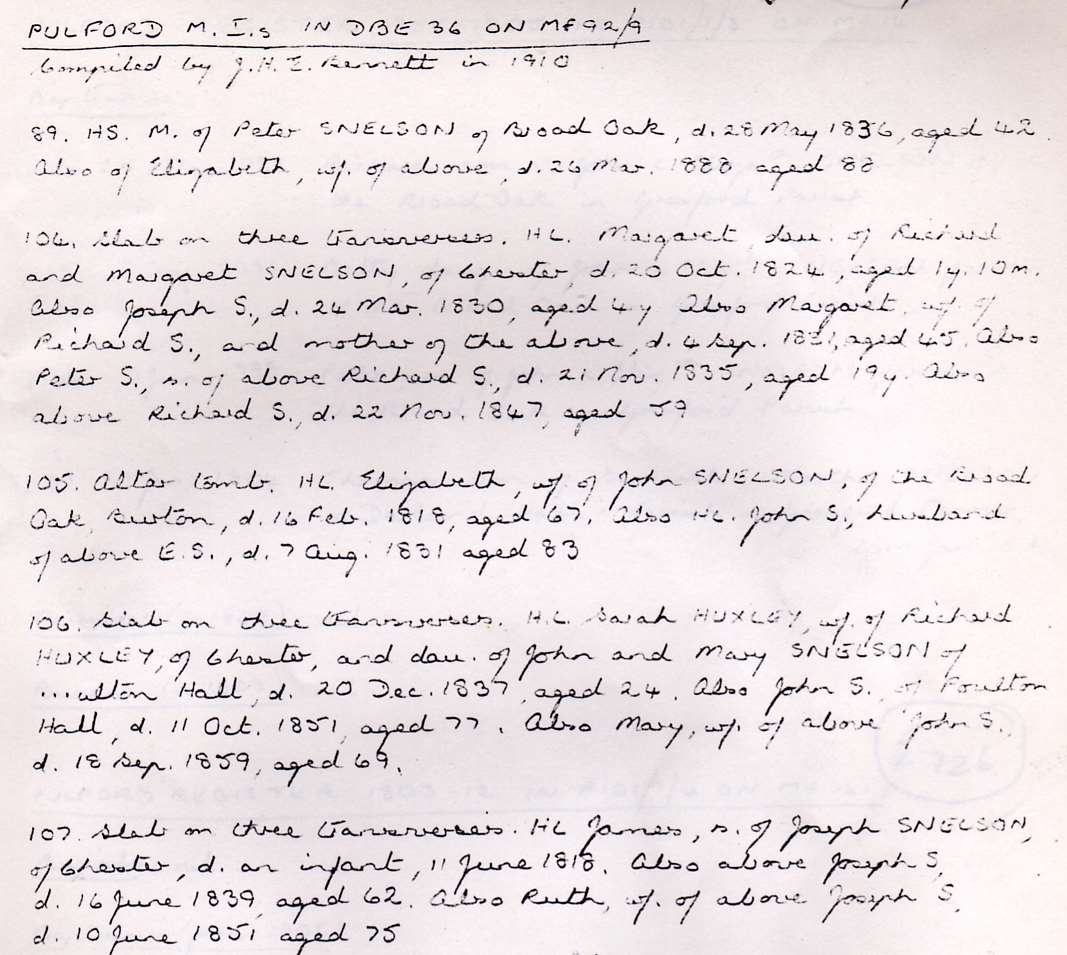 PULFORD M.I.s IN DBE 36 ON MF92/9
Compiled by J.H.E. Bennett in 1910
89. HS. M. of Peter SNELSON of Broad Oak, d. 28 May 1836, aged 42
Also of Elizabeth, w. of above, d. 26 Mar. 1888 aged 88
104. Slab on three transverses. HL. Margaret, dau. of Richard
and Margaret SNELSON, of Chester, d. 20 Oct. 1824, aged 1y. 10m.
Also Joseph S., d. 24 Mar. 1830, aged 4y. Also Margaret, w. of
Richard S., and mother of the above, d. 4 Sep. 1831, aged 45. Also
Peter S., s. of above Richard S., d. 21 Nov. 1835, aged 19y. Also
above Richard S., d. 22 Nov. 1847, aged 59
105. Altar tomb. HL. Elizabeth, w. of John SNELSON, of the Broad
Oak, Burton, d. 16 Feb. 1818, aged 67. Also HL. John S., husband
of above E.S., d. 7 Aug. 1831 aged 83
106. Slab on three transverses. H.L. Sarah HUXLEY, w. of Richard
HUXLEY, of Chester, and dau. of John and Mary SNELSON of
...ulton Hall, d. 20 Dec. 1837, aged 24. Also John S., of Poulton
Hall, d. 11 Oct. 1851, aged 77. Also Mary, w. of above John S.,
d. 18 Sep. 1859, aged 69.
107. Slab on three transverses. HL James, s. of Joseph SNELSON,
of Chester, d. an infant, 11 June 1818. Also above Joseph S,
d. 16 June 1839, aged 62. Also Ruth, w. of above Joseph S,
d. 10 June 1851 aged 75